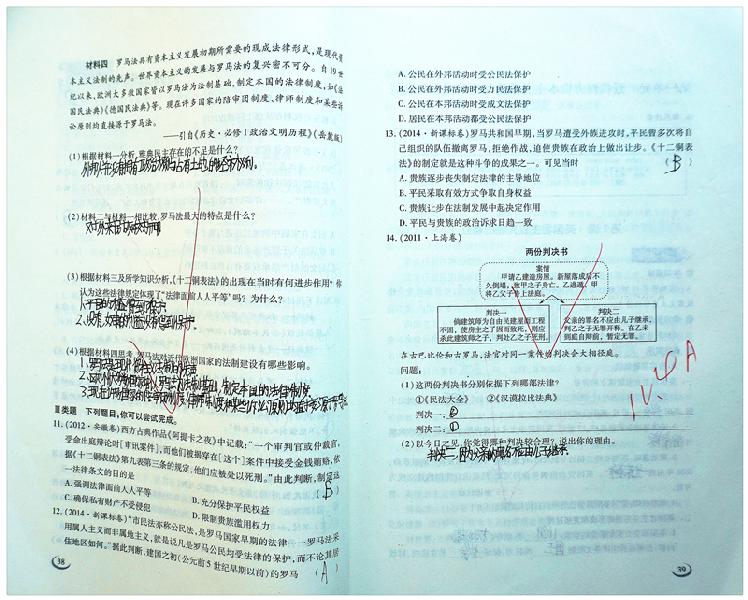 材料四 罗马法具有资本主义发展初期所需要的现成法律形式,是现代资
本主义法制的先声。世界资本主义的发展与罗马法的复兴密不可分。自19世
纪以来,欧洲大多数国家皆以罗马法为法制基础,制定本国的法律制度,如《法
国民法典》《德国民法典》等。现在许多国家的陪审团制度、律师制度和某些诉
讼原则均直接源于罗马法。
——引自《历史·必修Ⅰ政治文明历程》(岳麓版)
(1)根据材料一分析,雅典民主存在的不足是什么?
(2)材料二与材料一相比较,罗马法最大的特点是什么?
(3)根据材料三及所学知识分析,《十二铜表法》的出现在当时有何进步作用?你
认为这些法律规定体现了“法律面前人人平等”吗?为什么?
(4)根据材料四思考,罗马法对近代欧洲国家的法制建设有哪些影响。
Ⅱ类题 下列题目,你可以尝试完成。
11.(2012·安徽卷)西方古典作品《阿提卡之夜》中记载:“一个审判官或仲裁官,
受命出庭辩论时[审讯案件],而他们被揭穿在[这个]案件中接受金钱贿赂,依
据《十二铜表法》第九表第三条的规定,他们应被处以死刑。”由此判断,制定这
一法律条文的目的是 (B)
A.强调法律面前人人平等 B.充分保护平民权益
C.确保私有财产不受侵犯 D.限制贵族滥用权力
12.(2014·新课标卷)“市民法亦称公民法,是罗马国家早期的法律……罗马法采
用属人主义而非属地主义,就是说凡是罗马公民均受法律的保护,而不论其居
住地区如何。”据此判断,建国之初(公元前5世纪早期以前)的罗马 (A)
38
A.公民在外邦活动时受公民法保护
B.公民在外邦活动时受万民法保护
C.公民在本邦活动时受成文法保护
D.居民在本邦活动都受公民法保护
13.(2014·新课标卷)罗马共和国早期,当罗马遭受外族进攻时,平民曾多次将自
己组织的队伍撤离罗马,拒绝作战,迫使贵族在政治上做出让步。《十二铜表
法》的制定就是这种斗争的成果之一。可见当时 (B)
A.贵族逐步丧失制定法律的主导地位
B.平民采取有效方式争取自身权益
C.贵族让步在法制发展中起决定作用
D.平民与贵族的政治诉求日趋一致
14.(2011·上海卷)
两份判决书
案情
甲请乙建造房屋。新屋落成后不
久倒塌,致甲之子身亡。乙逃遁,甲
将乙父子告上法庭。
判决一
倘建筑师为自由民建屋而工程
不固,使房主之子因而致死,则应
杀此建筑师之子,判处乙之子死刑。
判决二
父亲的罪名不应由儿子继承,
判乙之子无罪开释。在乙未
到庭自辩前,暂定无罪。
在古巴比伦和古罗马,法官对同一案件的判决会大相径庭。
问题:
(1)这两份判决书分别依据下列哪部法律?
①《民法大全》 ②《汉谟拉比法典》
判决一:②
判决二:①
(2)以今日之见,你觉得哪种判决较合理?说出你的理由。
判决二,因为父亲的罪名不应由儿子继承。
39